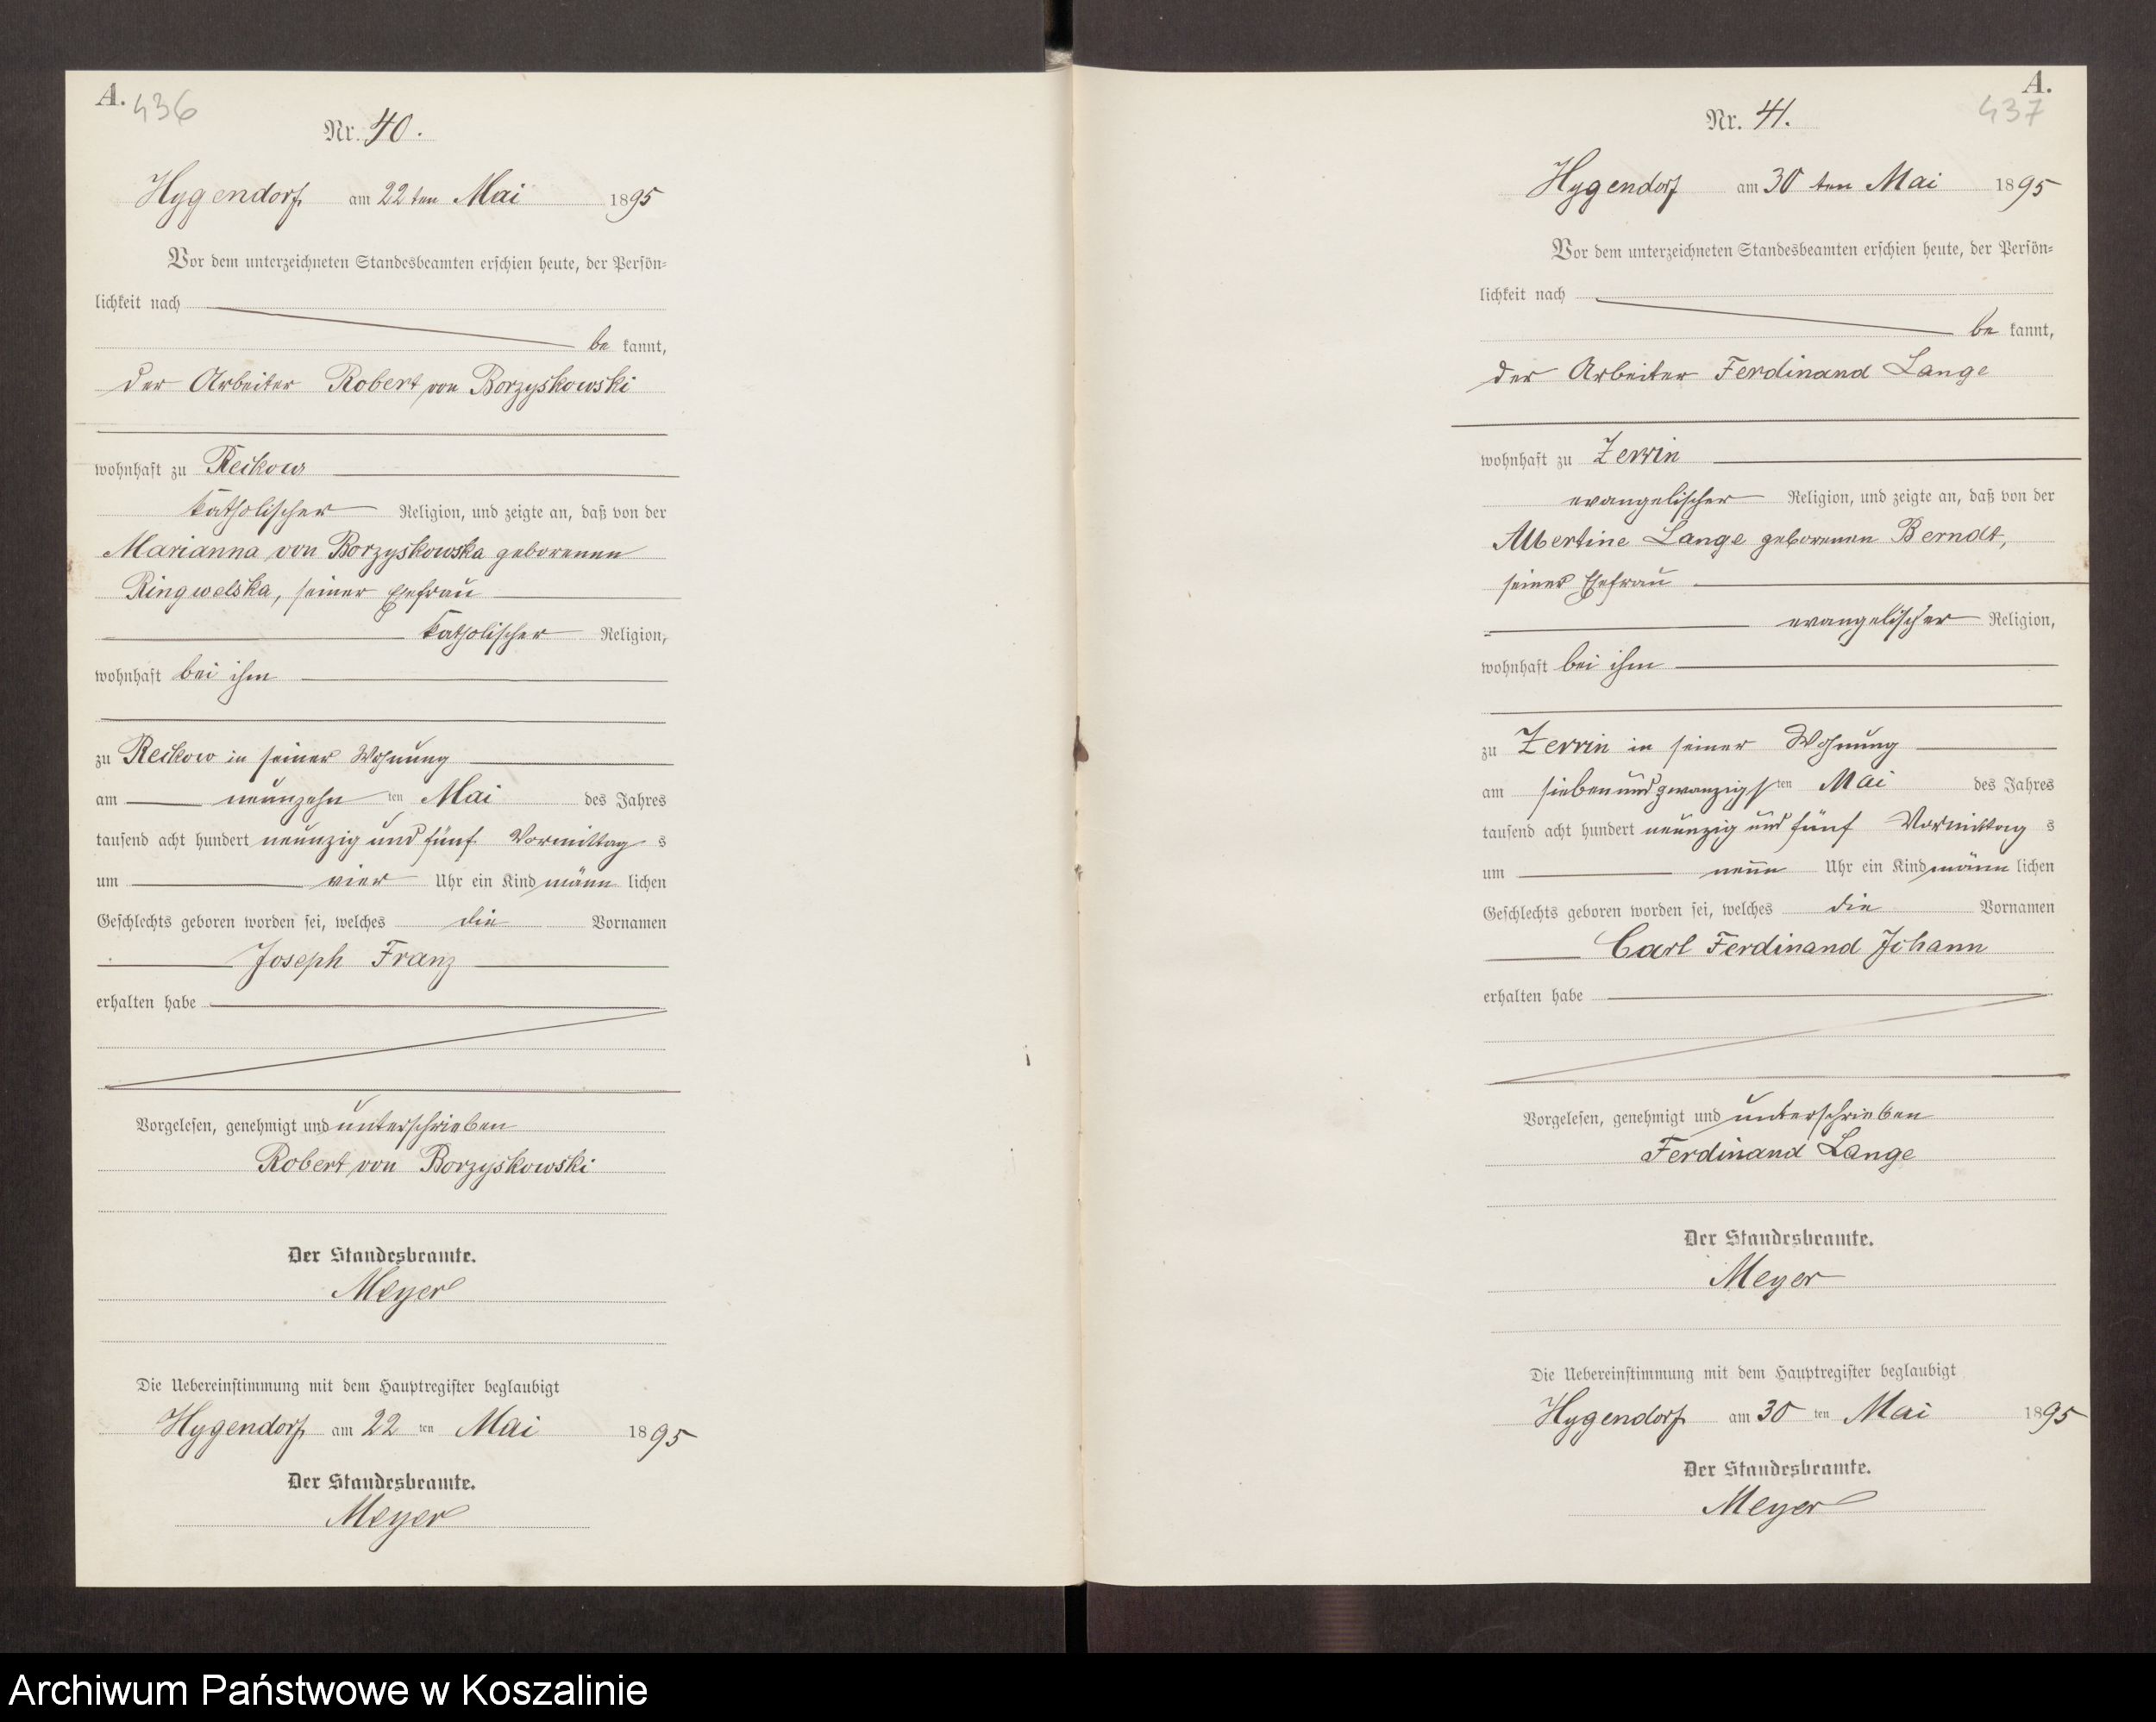 A.
436
Nr. 40.
Hygendorf am 22ten Mai 1895
Vor dem unterzeichneten Standesbeamten erschien heute, der Persön-
lichkeit nach
be kannt,
der Arbeiter Robert von Borzyskowski
wohnhaft zu Reckow
katholischer Religion, und zeigte an, daß von der
Marianna von Borzyskowska geborenen
Ringwelska, seiner Ehefrau
katholischer Religion,
wohnhaft bei ihm
zu Reckow in seiner Wohnung
am neunzehn ten Mai des Jahres
tausend acht hundert neunzig und fünf Vormittag s
um vier Uhr ein Kind männ lichen
Geschlechts geboren worden sei, welches die Vornamen
Joseph Franz
erhalten habe
Vorgelesen, genehmigt und unterschrieben
Robert von Borzyskowski
Der Standesbeamte.
Meyer
Die Uebereinstimmung mit dem Hauptregister beglaubigt
Hygendorf am 22 ten Mai 1895
Der Standesbeamte.
Meyer
A.
437
Nr. 41.
Hygendorf am 30 ten Mai 1895
Vor dem unterzeichneten Standesbeamten erschien heute, der Persön-
lichkeit nach
be kannt,
der Arbeiter Ferdinand Lange
wohnhaft zu Zerrin
evangelischer Religion, und zeigte an, daß von der
Albertine Lange geborenen Berndt,
seiner Ehefrau
evangelischer Religion,
wohnhaft bei ihm
zu Zerrin in seiner Wohnung
am siebenundzwanzigs ten Mai des Jahres
tausend acht hundert neunzig und fünf Vormittag s
um neun Uhr ein Kind männ lichen
Geschlechts geboren worden sei, welches die Vornamen
Carl Ferdinand Johann
erhalten habe
Vorgelesen, genehmigt und unterschrieben
Ferdinand Lange
Der Standesbeamte.
Meyer
Die Uebereinstimmung mit dem Hauptregister beglaubigt
Hygendorf am 30 ten Mai 1895
Der Standesbeamte.
Meyer
Archiwum Państwowe w Koszalinie